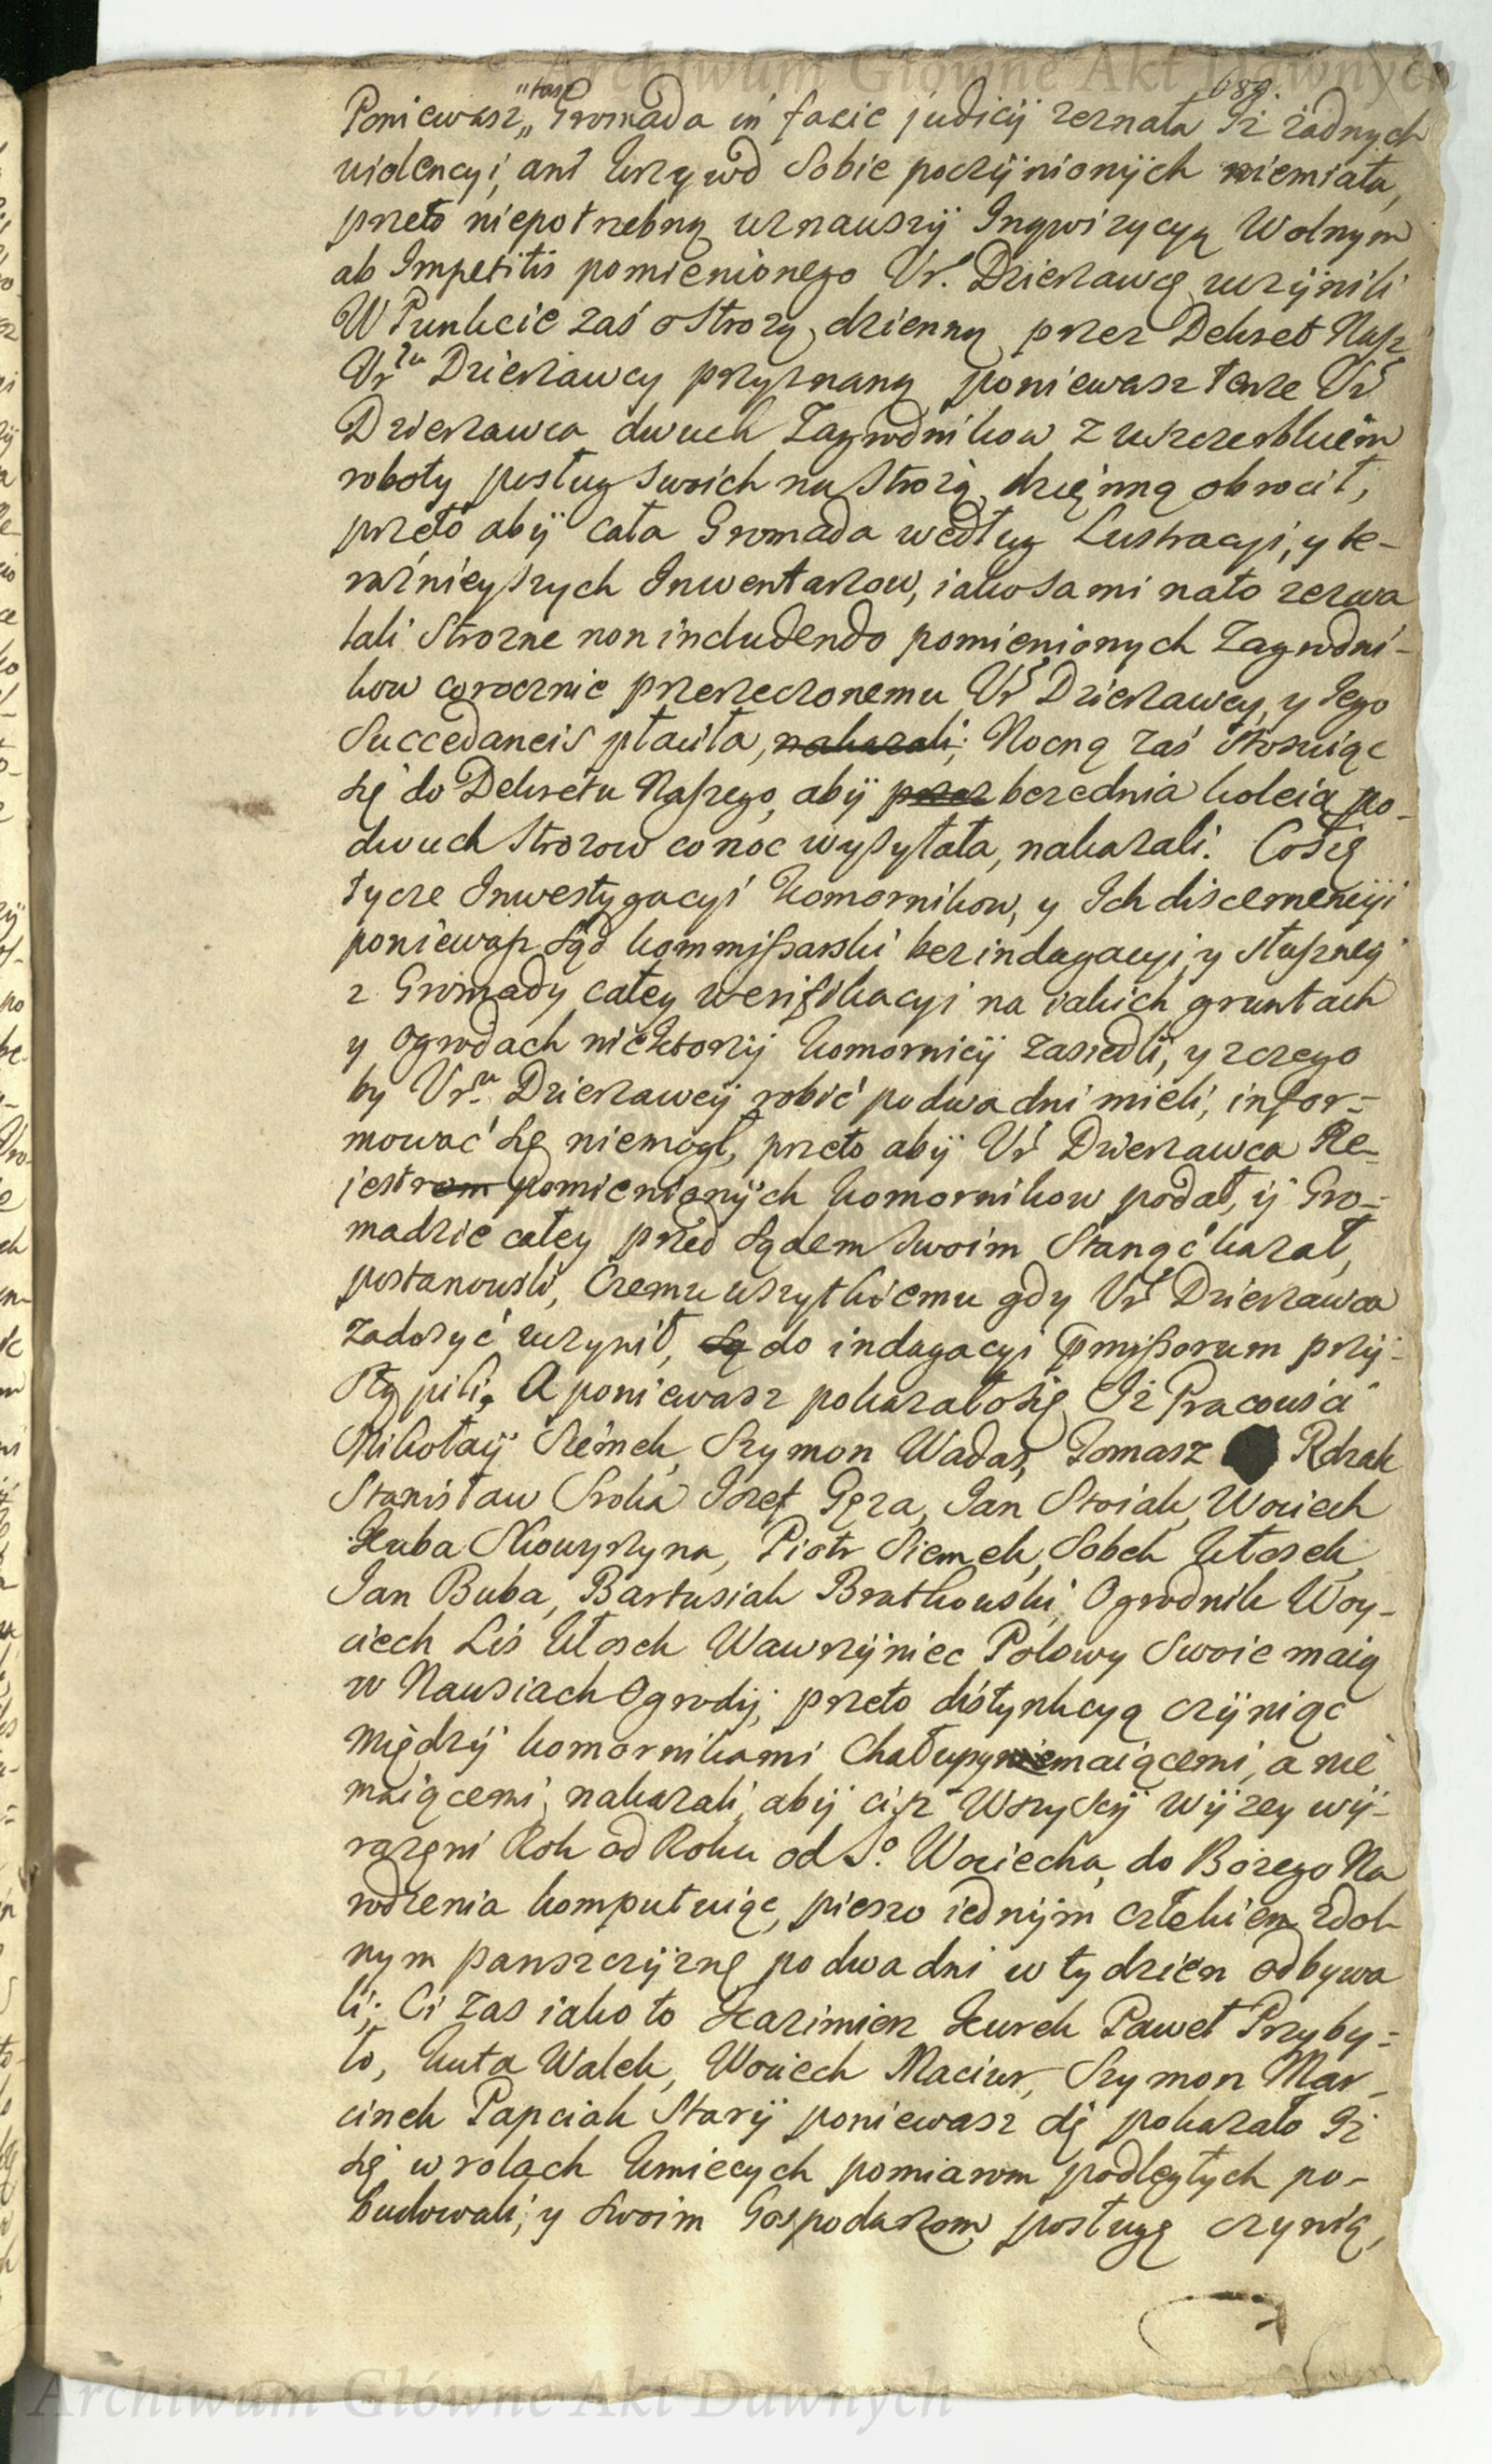 © Archiwum Główne Akt Dawnych
689.
Poniewasz „taż Gromada in facie judicij zeznała Iż żadnych
violencyi, ani krzywd sobie poczÿnionÿch niemiała,
przeto niepotrzebną uznawszÿ Inqwizycyą Wolnym
ab Impetitis pomienionego Ur. Dzierżawcę uczÿnili
W Punkcie zaś o Strozą dzienną przez Dekret Nasz
Urmu Dzierżawcy przyznaną poniewasz tenze Ur
Dzierżawca dwuch Zagrodnikow z uszczerbkiem
roboty posług swoich na Strożą dzięnną obrocił,
przeto abÿ cała Gromada według Lustracyi, y te-
raźnieyszych Inwentarzow, iako sami nato zezwa
lali Strozne non includendo pomienionych Zagrodni-
kow corocznie przerzeczonemu Ur Dzierzawcy, y Jego
Succedaneis płaciła, nakazali; Nocną zaś stosuiąc
się do Dekretu Naszego, abÿ przez bezednia koleią po-
dwuch Strozow co noc wysyłała, nakazali. Co się
tycze Inwestygacyi Komornikow, y Ich discernencyi
poniewasz Sąd kommissarski bez indagacyi, y słuszney
z Gromady całey weryfikacyi na iakich gruntach
y Ogrodach niektorzÿ Komornicÿ zasiedli, y z czego
by Urmu Dzierzawcÿ robić po dwa dni mieli, infor-
mować się niemogł, przeto abÿ Ur Dzierzawca Re-
jestrem pomienionÿch Komornikow podał, ÿ Gro-
madzie całey przed Sądem swoim stanąć kazał,
postanowili, Czemu wszytkiemu gdy Ur Dzierzawca
zadosyć uczynił, Są do indagacyi Pmissorum przÿ-
stąpili. A poniewasz pokazało się Iż Pracowici
Mikołaÿ Siemek, Szymon Wadas, Tomasz Rdzak
Stanisław Sroka Jozef Gęza, Jan Stoiak, Wociech
Kuba Skowyszyna, Piotr Siemek, Sobek Kłosek,
Jan Buba, Bartusiak Bratkowski, Ogrodnik Woy-
ciech Lis Kłosek Wawrzÿniec Polowy swoie maią
w Nawsiach Ogrodÿ; przeto distynkcyą czÿniąc
międzÿ komornikami Chałupy niemaiącemi, a nie
maiącemi, nakazali, abÿ ciż Wszyscÿ wÿzey wÿ-
rażęni Rok od Roku od So Wociecha, do Bożego Na
rodzenia komputuiąc, pieszo iednÿm człekiem zdol
nym panszczÿznę po dwa dni w tydzien odbywa
li; Ci zas iako to Kazimierz Kurek Paweł Przyby-
ło, Kuta Walek, Wociech Maciur, Szymon Mar-
cinek Papciak Starÿ poniewasz się pokazało Iż
się w rolach Kmiecych pomiarom podległych po-
budowali, y swoim Gospodarzom posługę czynią,
Archiwum Główne Akt Dawnych